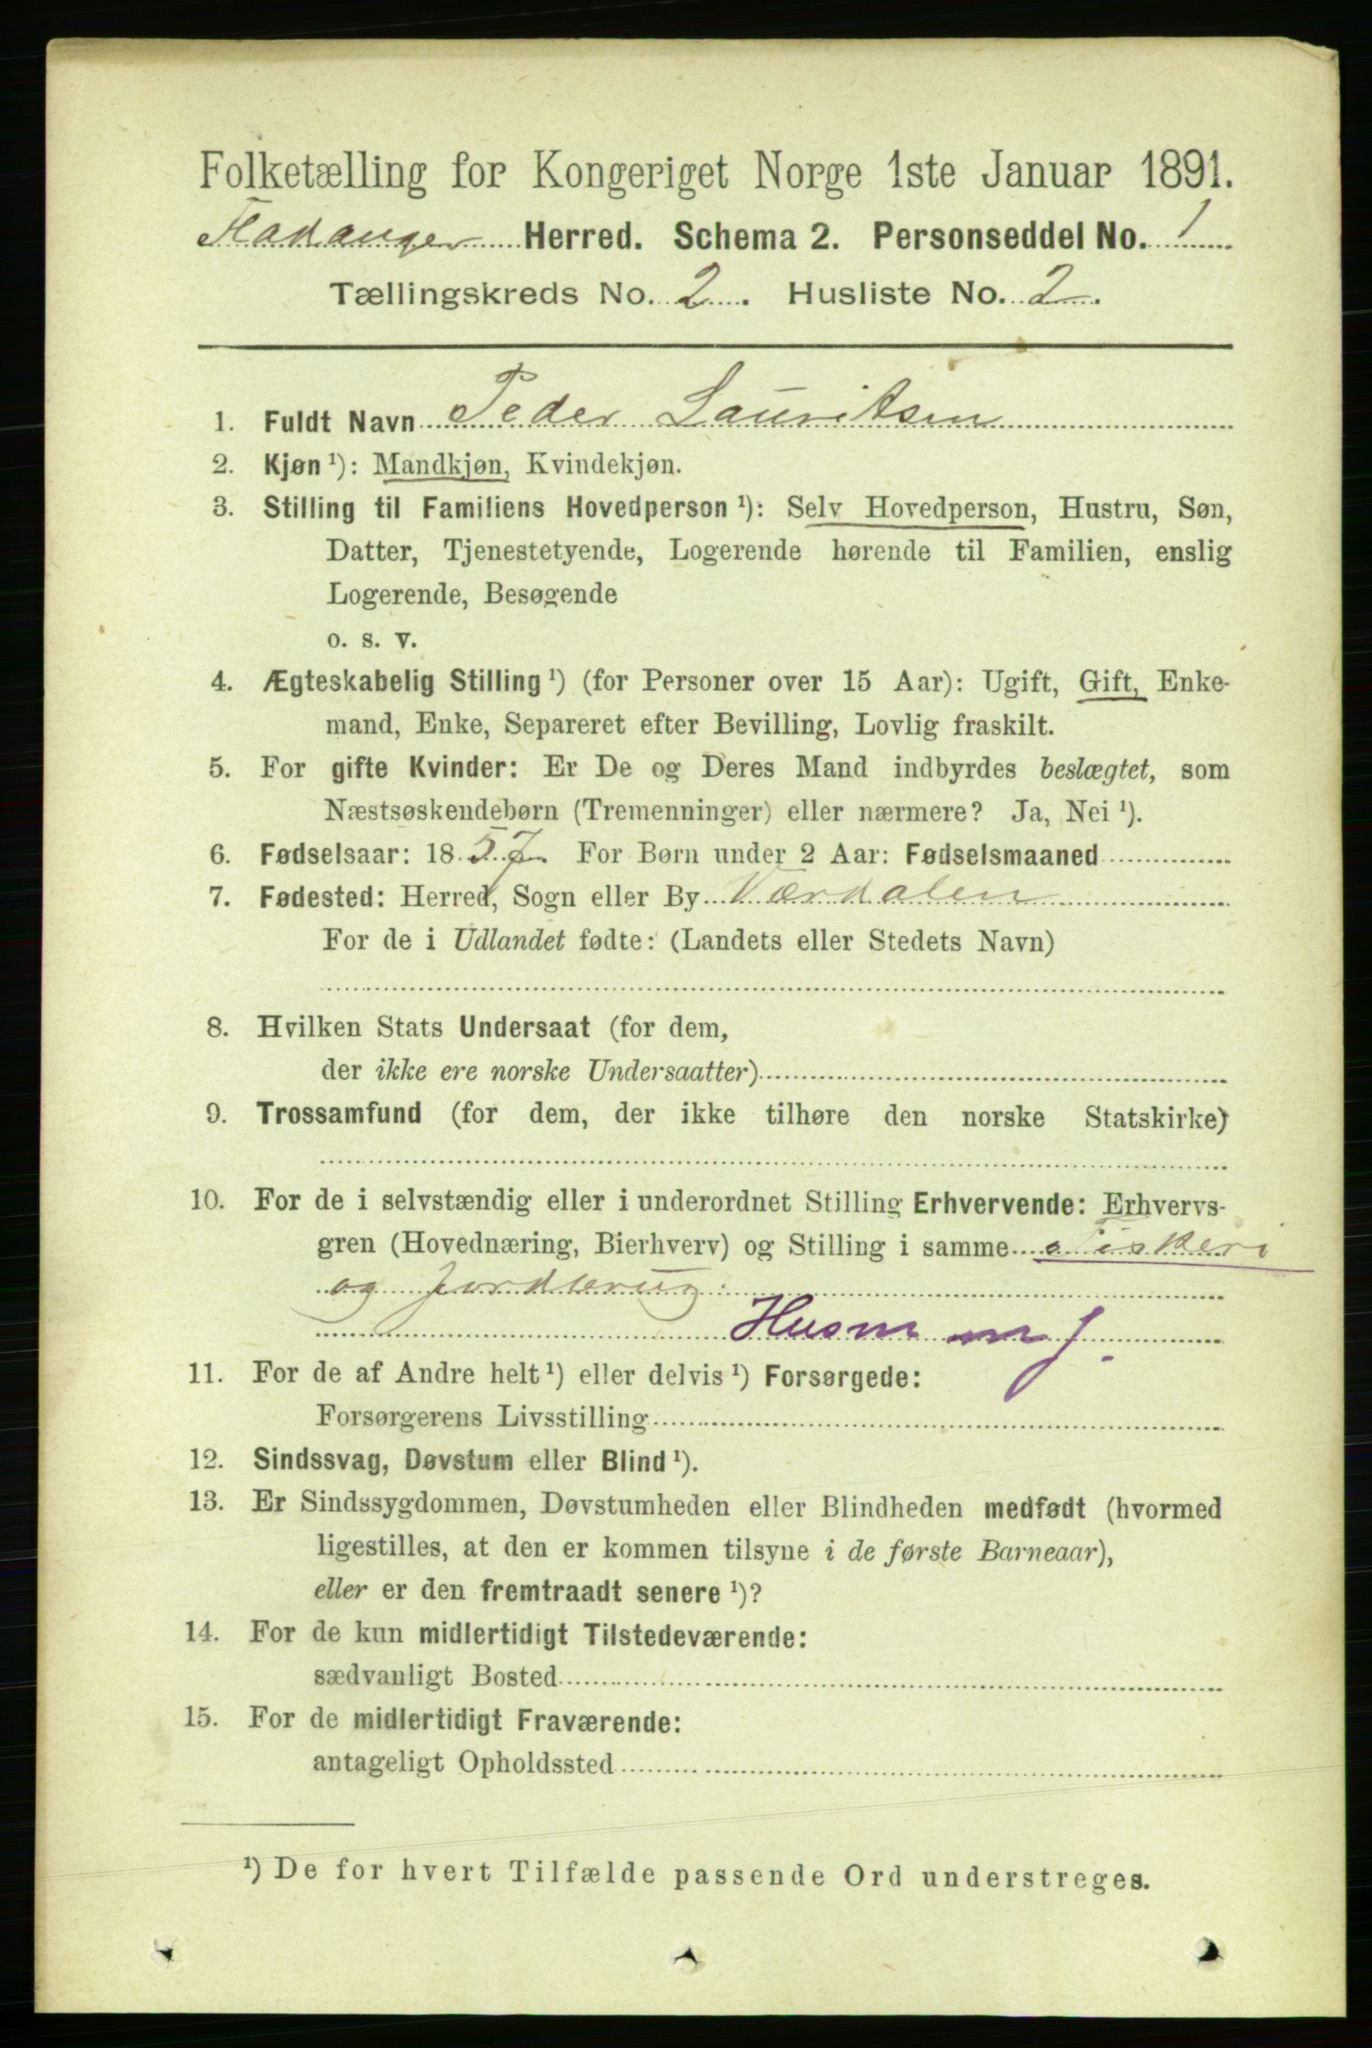 Folketælling for Kongeriget Norge 1ste Januar 1891.
Fladanger Herred. Schema 2. Personseddel No. 1
Tællingskreds No. 2. Husliste No. 2.
1. Fuldt Navn Peder Lauritsen
2. Kjøn ¹): Mandkjøn, Kvindekjøn.
3. Stilling til Familiens Hovedperson ¹): Selv Hovedperson, Hustru, Søn,
Datter, Tjenestetyende, Logerende hørende til Familien, enslig
Logerende, Besøgende
o. s. v.
4. Ægteskabelig Stilling ¹) (for Personer over 15 Aar): Ugift, Gift, Enke-
mand, Enke, Separeret efter Bevilling, Lovlig fraskilt.
5. For gifte Kvinder: Er De og Deres Mand indbyrdes beslægtet, som
Næstsøskendebørn (Tremenninger) eller nærmere? Ja, Nei ¹).
6. Fødselsaar: 1857 For Børn under 2 Aar: Fødselsmaaned
7. Fødested: Herred, Sogn eller By Værdalen
For de i Udlandet fødte: (Landets eller Stedets Navn)
8. Hvilken Stats Undersaat (for dem,
der ikke ere norske Undersaatter)
9. Trossamfund (for dem, der ikke tilhøre den norske Statskirke)
10. For de i selvstændig eller i underordnet Stilling Erhvervende: Erhvervs-
gren (Hovednæring, Bierhverv) og Stilling i samme Fiskeri
og Jordbrug.
Husm m J.
11. For de af Andre helt ¹) eller delvis ¹) Forsørgede:
Forsørgerens Livsstilling
12. Sindssvag, Døvstum eller Blind ¹).
13. Er Sindssygdommen, Døvstumheden eller Blindheden medfødt (hvormed
ligestilles, at den er kommen tilsyne i de første Barneaar),
eller er den fremtraadt senere ¹)?
14. For de kun midlertidigt Tilstedeværende:
sædvanligt Bosted
15. For de midlertidigt Fraværende:
antageligt Opholdssted
¹) De for hvert Tilfælde passende Ord understreges.